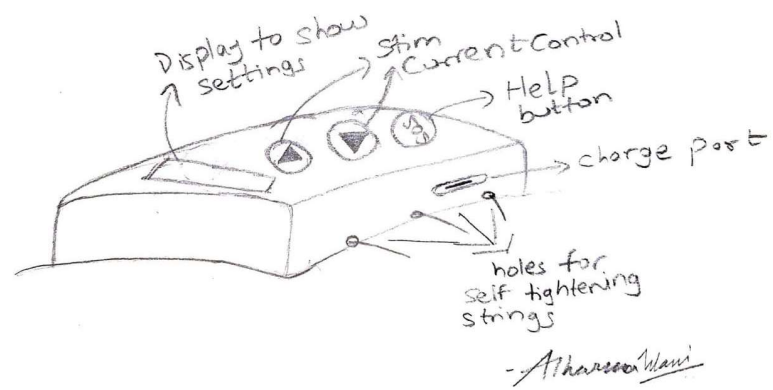 Display to show
settings
Stim
Current Control
Help
button
SOS
charge port
holes for
self tightening
strings